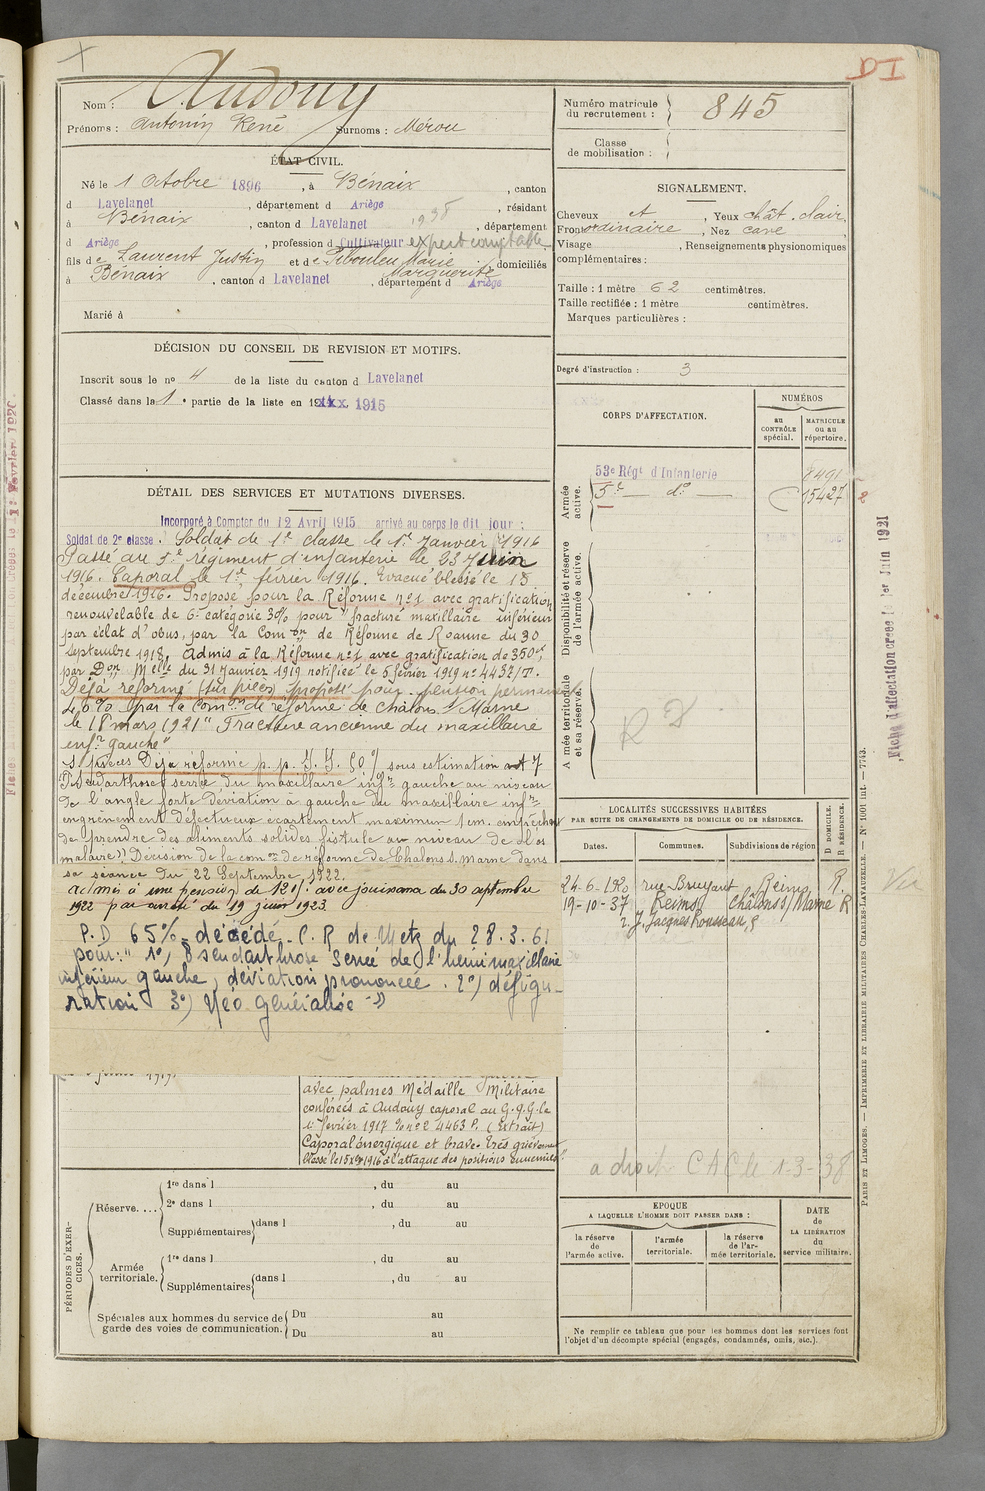 DI
Nom : Audouy
Prénoms : Antonin René Surnoms : Mérou
ÉTAT CIVIL.
Né le 1 Octobre 1896, à Bénaix, canton
d Lavelanet, département d Ariège, résidant
à Bénaix, canton d Lavelanet 1938, département
d Ariège, profession d Cultivateur expert comptable
fils de Laurent Justin et de Piboulеu Marie Marguerite, domiciliés
à Bénaix, canton d Lavelanet, département d Ariège
Marié à
DÉCISION DU CONSEIL DE REVISION ET MOTIFS.
Inscrit sous le no 4 de la liste du canton d Lavelanet
Classé dans la 1e partie de la liste en 1915
DÉTAIL DES SERVICES ET MUTATIONS DIVERSES.
Incorporé à Compter du 12 Avril 1915 arrivé au corps le dit jour ;
Soldat de 2e classe. Soldat de 1e classe le 1er Janvier 1916
Passé au 5e régiment d'infanterie le 23 Juin
1916. Caporal le 1er février 1916. Evacué blessé le 15
décembre 1916. Proposé pour la Réforme no 1 avec gratification
renouvelable de 6e catégorie 30% pour "fracture maxillaire inférieur
par éclat d'obus, par la Com on de Réforme de Roanne du 30
Septembre 1918. Admis à la Réforme no 1 avec gratification de 350f,
par Don Melle du 31 Janvier 1919 notifiée le 5 février 1919 no 4437/T.
Déjà réformé (sur pièces) proposé pour pension permanente
40% par la Comon de réforme de Châlons s/Marne
le 18 mars 1921 "Fracture ancienne du maxillaire
infr gauche"
S/ pièces Déjà réformé p. p. I. I. 50% sous estimation art 7
Pseudarthrose serrée du maxillaire infr gauche au niveau
de l'angle forte déviation à gauche du maxillaire infr
engrènement défectueux écartement maximum 1cm. empêchant
de prendre des aliments solides fistule au niveau de l'os
malaire)) Décision de la comon de réforme de Chalons s. marne dans
sa séance du 22 Septembre 1922.
admis à une pension de 1200f. avec jouissance du 30 septembre
1922 par arrêté du 19 juin 1923
P.D 65% décédé C.R de Metz du 28.3.61
pour:" 1o) Pseudarthrose serrée de l'hémimaxillaire
inférieur gauche, déviation prononcée. 2o) défigu-
ration 3o) Néo généralisée"
avec palmes Médaille Militaire
conférées à Audouy caporal au G.Q.G. le
1er février 1917 No 4463 P. (Extrait)
Caporal énergique et brave. très grièvement
blessé le 15 Xbre 1916 à l'attaque des positions ennemies".
PÉRIODES D'EXERCICES.
Réserve....
1re dans l , du au
2e dans l , du au
Supplémentaires dans l , du au
Armée territoriale.
1re dans l , du au
Supplémentaires dans l , du au
Spéciales aux hommes du service de garde des voies de communication.
Du au
Du au
Numéro matricule du recrutement : 845
Classe de mobilisation :
SIGNALEMENT.
Cheveux et, Yeux chât. clair,
Front ordinaire, Nez cave
Visage , Renseignements physionomiques
complémentaires :
Taille : 1 mètre 62 centimètres.
Taille rectifiée : 1 mètre centimètres.
Marques particulières :
Degré d'instruction : 3
CORPS D'AFFECTATION.
NUMÉROS
au CONTRÔLE spécial.
MATRICULE ou au répertoire.
Armée active.
53e Régt d'Infanterie 8491
5e do 15427
Disponibilité et réserve de l'armée active.
Armée territoriale et sa réserve.
LOCALITÉS SUCCESSIVES HABITÉES
PAR SUITE DE CHANGEMENTS DE DOMICILE OU DE RÉSIDENCE.
Dates. Communes. Subdivisions de région D DOMICILE. R RÉSIDENCE.
24-6-1920 rue Bruyant Reims R.
19-10-37 Reims Châlons s/Marne R
r. J. Jacques Rousseau,
Vu
a droit CAC le 1-3-38
EPOQUE
A LAQUELLE L'HOMME DOIT PASSER DANS :
la réserve de l'armée active.
l'armée territoriale.
la réserve de l'armée territoriale.
DATE de LA LIBÉRATION du service militaire.
Ne remplir ce tableau que pour les hommes dont les services font
l'objet d'un décompte spécial (engagés, condamnés, omis, etc.).
Fiche d'affectation créée le 1er Juin 1921
PARIS ET LIMOGES. — IMPRIMERIE ET LIBRAIRIE MILITAIRES CHARLES-LAVAUZELLE. — No 1001 int. — 7743.